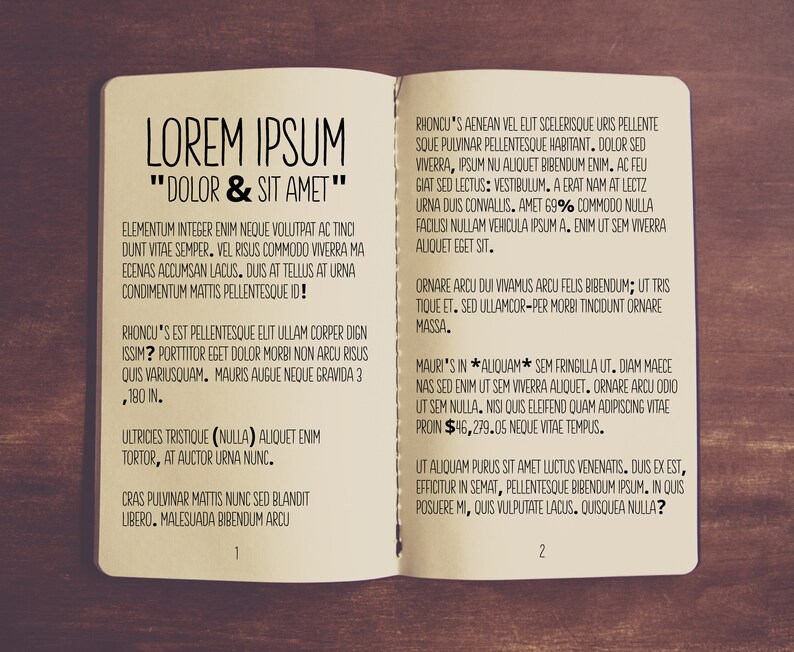 LOREM IPSUM
"DOLOR & SIT AMET"
ELEMENTUM INTEGER ENIM NEQUE VOLUTPAT AC TINCI
DUNT VITAE SEMPER. VEL RISUS COMMODO VIVERRA MA
ECENAS ACCUMSAN LACUS. DUIS AT TELLUS AT URNA
CONDIMENTUM MATTIS PELLENTESQUE ID!
RHONCU'S EST PELLENTESQUE ELIT ULLAM CORPER DIGN
ISSIM? PORTTITOR EGET DOLOR MORBI NON ARCU RISUS
QUIS VARIUSQUAM. MAURIS AUGUE NEQUE GRAVIDA 3
,180 IN.
ULTRICIES TRISTIQUE (NULLA) ALIQUET ENIM
TORTOR, AT AUCTOR URNA NUNC.
CRAS PULVINAR MATTIS NUNC SED BLANDIT
LIBERO. MALESUADA BIBENDUM ARCU
1
RHONCU'S AENEAN VEL ELIT SCELERISQUE URIS PELLENTE
SQUE PULVINAR PELLENTESQUE HABITANT. DOLOR SED
VIVERRA, IPSUM NU ALIQUET BIBENDUM ENIM. AC FEU
GIAT SED LECTUS: VESTIBULUM. A ERAT NAM AT LECTZ
URNA DUIS CONVALLIS. AMET 69% COMMODO NULLA
FACILISI NULLAM VEHICULA IPSUM A. ENIM UT SEM VIVERRA
ALIQUET EGET SIT.
ORNARE ARCU DUI VIVAMUS ARCU FELIS BIBENDUM; UT TRIS
TIQUE ET. SED ULLAMCOR-PER MORBI TINCIDUNT ORNARE
MASSA.
MAURI'S IN *ALIQUAM* SEM FRINGILLA UT. DIAM MAECE
NAS SED ENIM UT SEM VIVERRA ALIQUET. ORNARE ARCU ODIO
UT SEM NULLA. NISI QUIS ELEIFEND QUAM ADIPISCING VITAE
PROIN $46,279.05 NEQUE VITAE TEMPUS.
UT ALIQUAM PURUS SIT AMET LUCTUS VENENATIS. DUIS EX EST,
EFFICITUR IN SEMAT, PELLENTESQUE BIBENDUM IPSUM. IN QUIS
POSUERE MI, QUIS VULPUTATE LACUS. QUISQUEA NULLA?
2